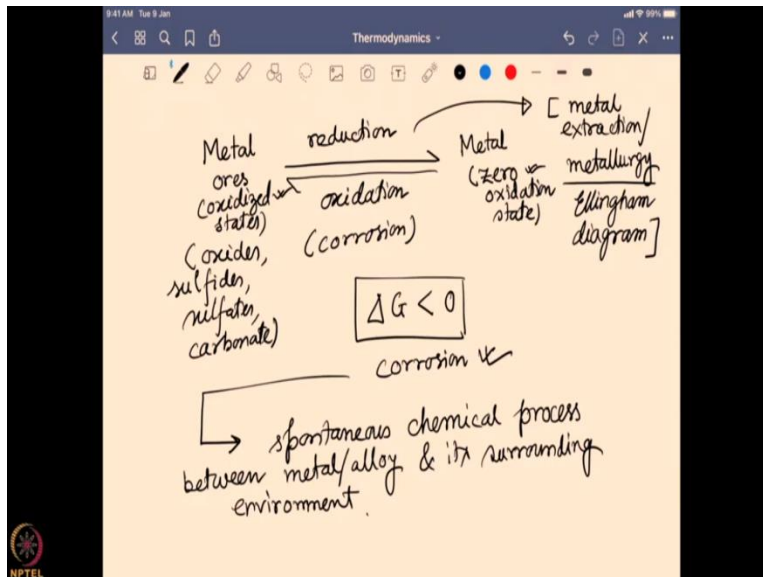 9:41 AM Tue 9 Jan
99%
Thermodynamics
Metal
ores
(oxidized
states)
(oxides,
sulfides,
sulfates,
carbonate)
reduction
oxidation
(corrosion)
Metal
(zero
oxidation
state)
[metal
extraction/
metallurgy
Ellingham
diagram]
ΔG < 0
corrosion
spontaneous chemical process
between metal/alloy & its surrounding
environment.
NPTEL